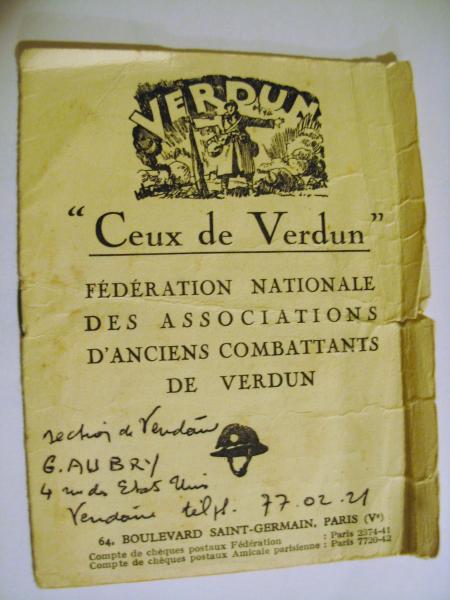 VERDUN
"Ceux de Verdun"
FÉDÉRATION NATIONALE
DES ASSOCIATIONS
D'ANCIENS COMBATTANTS
DE VERDUN
section de Vendôme
G. AUBRY
4 rue des Etats Unis
Vendôme télpf. 77.02.21
64, BOULEVARD SAINT-GERMAIN, PARIS (Vᵉ)
Compte de chèques postaux Fédération : Paris 2374-41
Compte de chèques postaux Amicale parisienne : Paris 7720-42